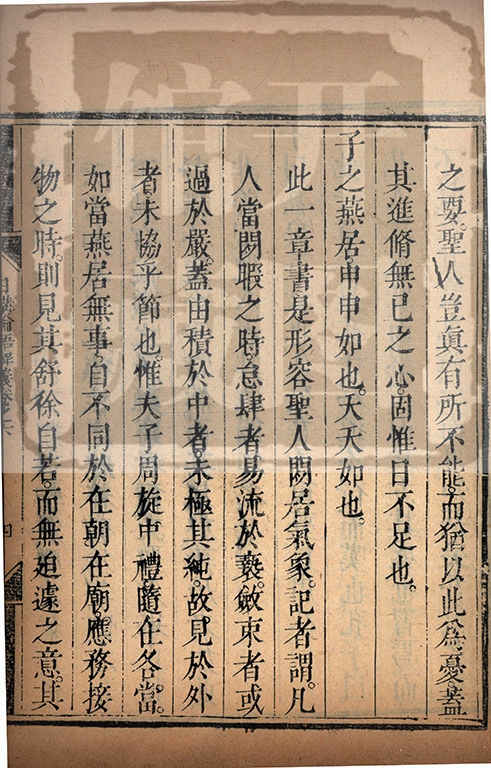 之要。聖人豈真有所不能。而猶以此為憂。蓋
其進脩無已之心。固惟日不足也。
子之燕居。申申如也。夭夭如也。
此一章書是形容聖人閒居氣象。記者謂。凡
人當閒暇之時。怠肆者易流於褻。斂束者或
過於嚴。蓋由積於中者。未極其純。故見於外
者未協乎節也。惟夫子周旋中禮。隨在各當。
如當燕居無事。自不同於在朝在廟。應務接
物之時。則見其舒徐自若。而無迫遽之意。其
日講論語解義卷之六
四